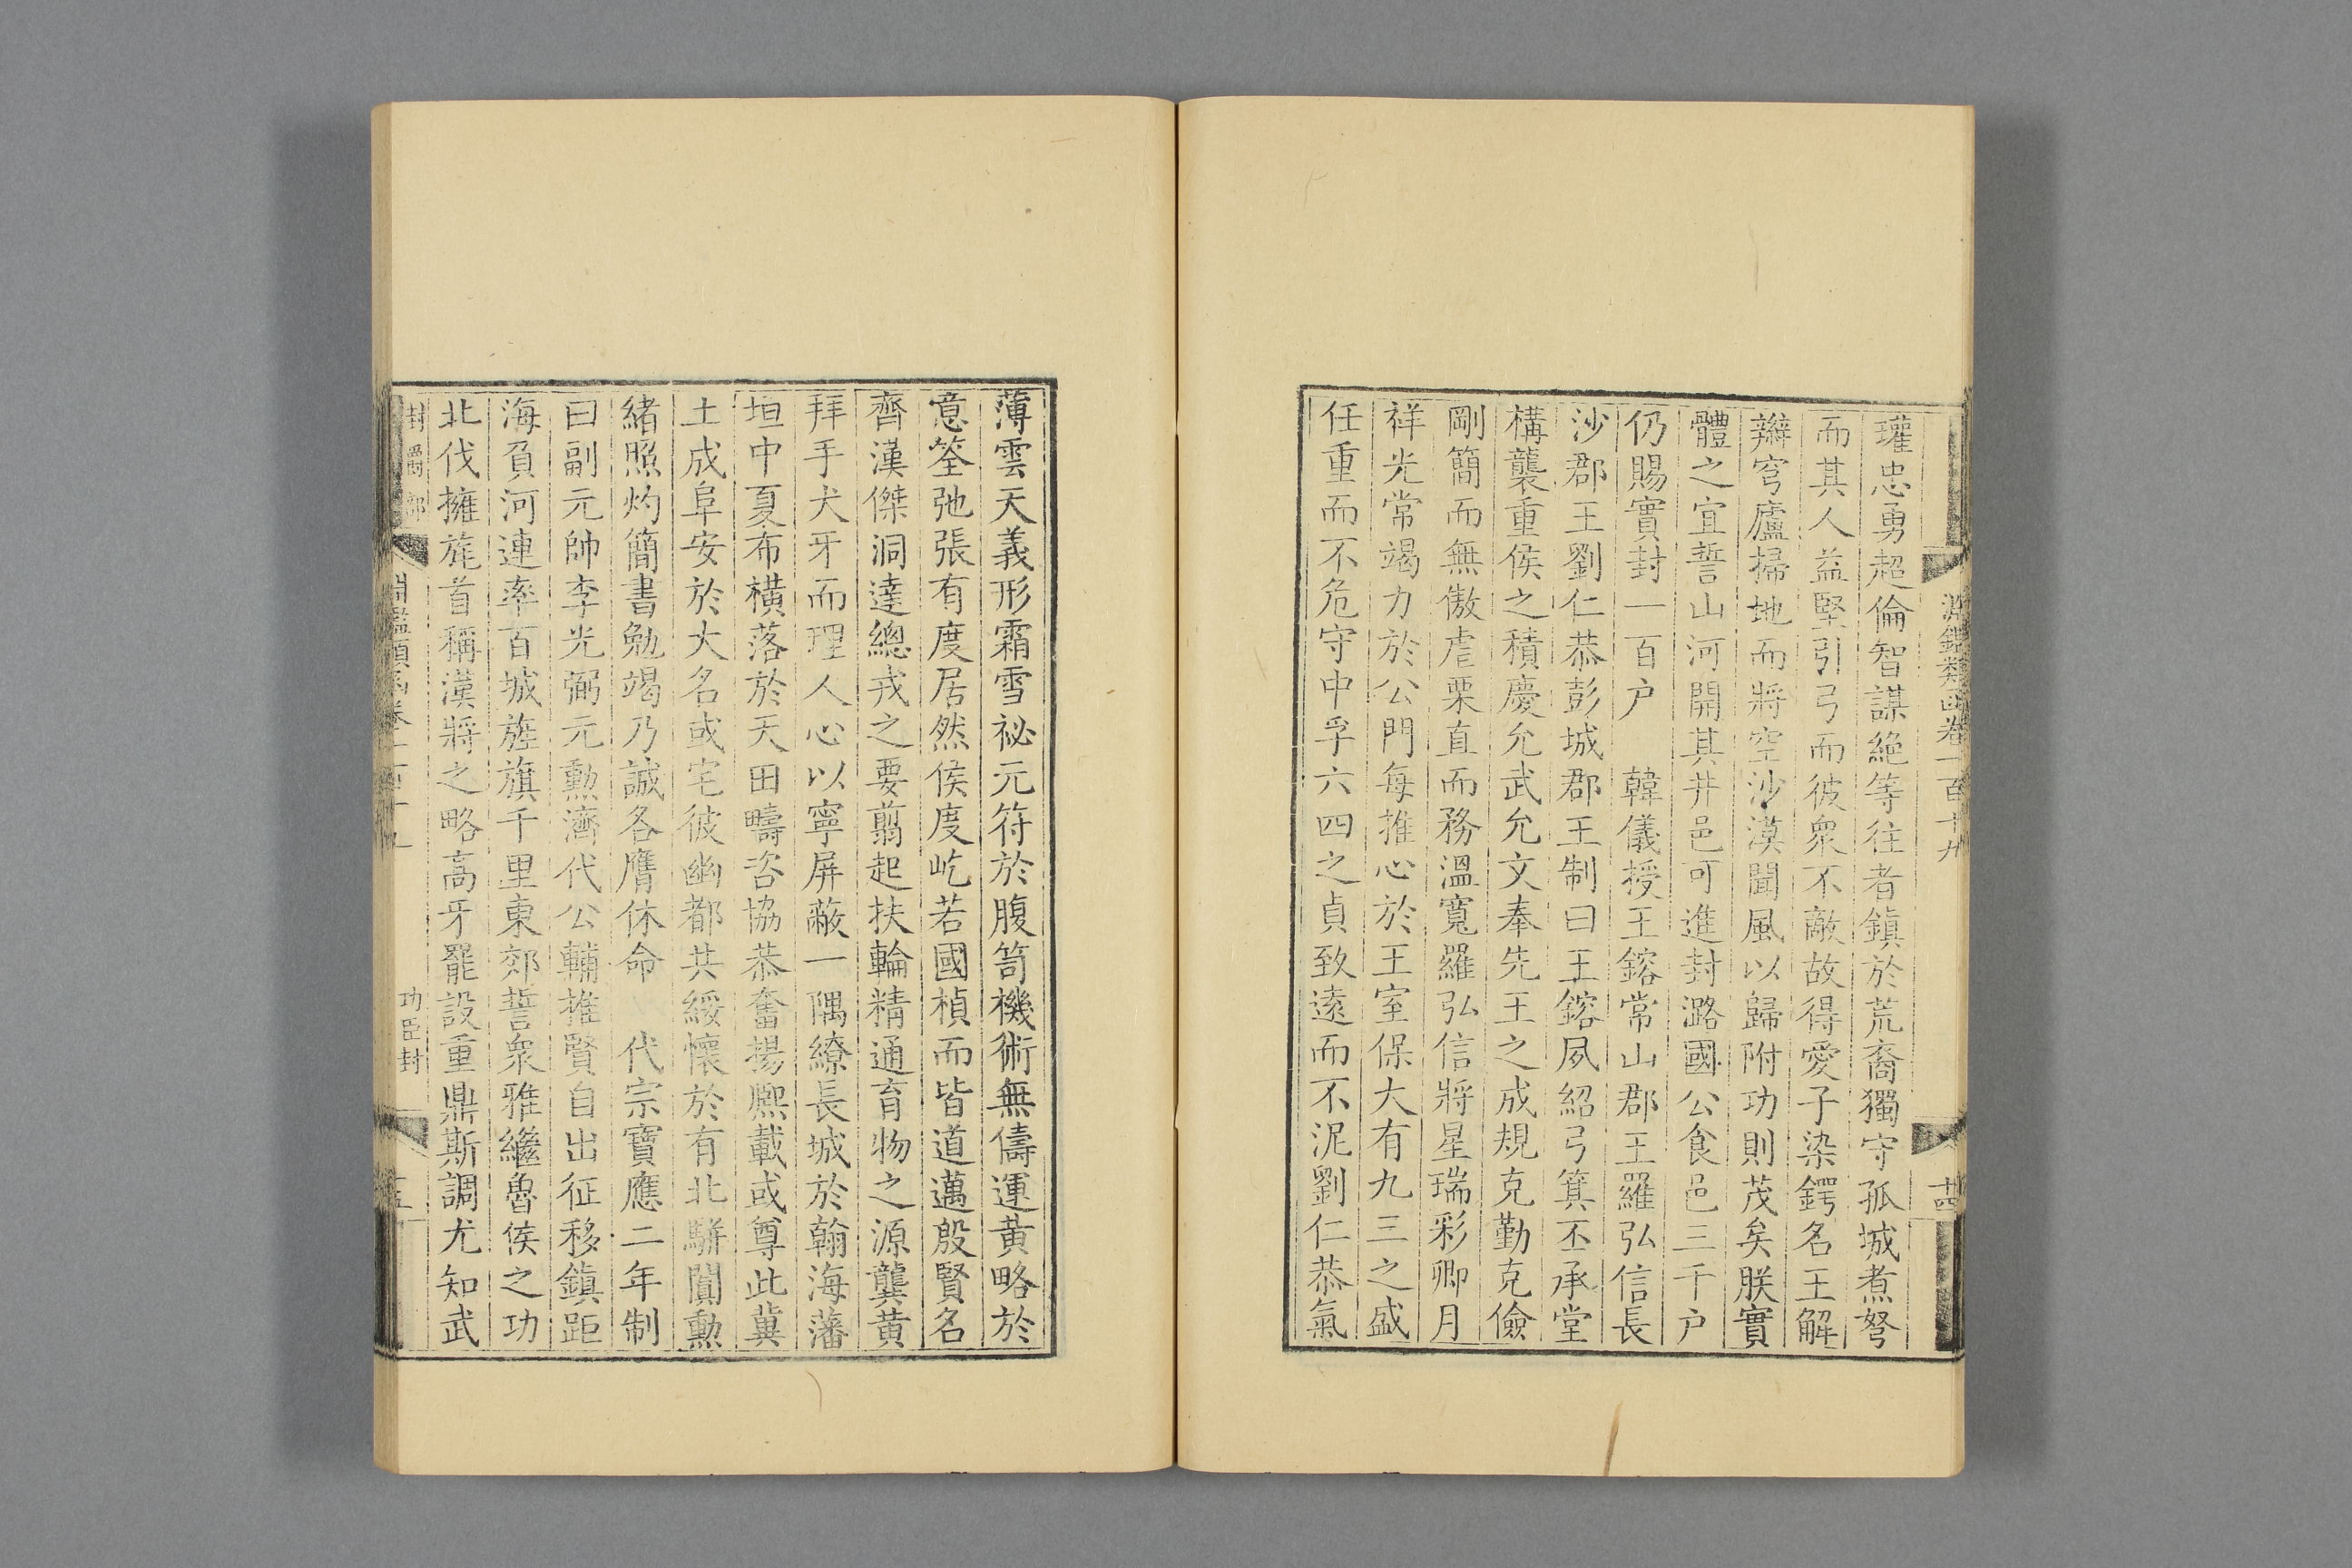 淵鑑類函卷一百十九
十四
瓘忠勇超倫智謀絶等往者鎮於荒裔獨守孤城煮弩
而其人益堅引弓而彼衆不敵故得愛子染鍔名王解
辮穹廬掃地而將空沙漠聞風以歸附功則茂矣朕實
體之宜誓山河開其井邑可進封潞國公食邑三千户
仍賜實封一百户　韓儀授王鎔常山郡王羅弘信長
沙郡王劉仁恭彭城郡王制曰王鎔夙紹弓箕丕承堂
構襲重侯之積慶允武允文奉先王之成規克勤克儉
剛簡而無傲虐栗直而務溫寬羅弘信將星瑞彩卿月
祥光常竭力於公門每推心於王室保大有九三之盛
任重而不危守中孚六四之貞致遠而不泥劉仁恭氣
薄雲天義形霜雪祕元符於腹笥機術無儔運黃略於
意筌弛張有度居然侯度屹若國楨而皆道邁殷賢名
齊漢傑洞達總戎之要翦起扶輪精通育物之源龔黃
拜手犬牙而理人心以寧屏蔽一隅繚長城於翰海藩
垣中夏布橫落於天田疇咨協恭奮揚熙載或尊此冀
土成阜安於大名或宅彼幽都共綏懷於有北駢闐勲
緒照灼簡書勉竭乃誠各膺休命　代宗寶應二年制
曰副元帥李光弼元勲濟代公輔推賢自出征移鎮距
海負河連率百城旌旗千里東郊誓衆雅繼魯侯之功
北伐擁旄首稱漢將之略高牙罷設重鼎斯調尤知武
封爵部
淵鑑類函卷一百十九
功臣封
十五